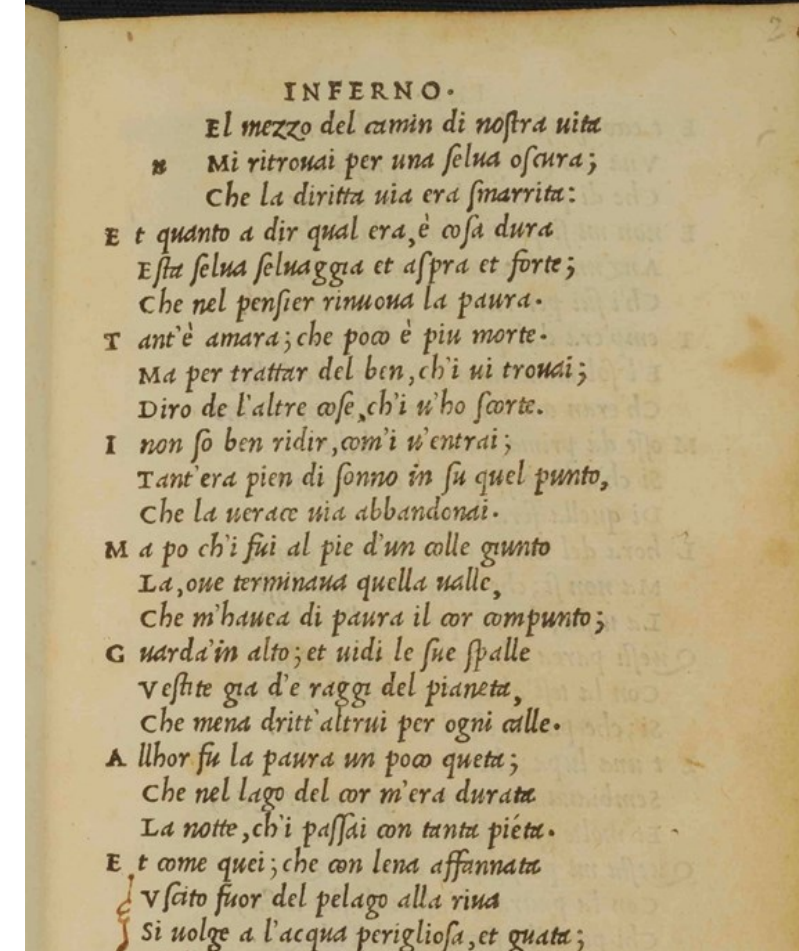 2
INFERNO.
El mezzo del camin di noſtra uita
n Mi ritrouai per una ſelua oſcura;
Che la diritta uia era ſmarrita:
E t quanto a dir qual era, è coſa dura
Eſta ſelua ſeluaggia et aſpra et forte;
Che nel penſier rinuoua la paura.
T ant'è amara; che poco è piu morte.
Ma per trattar del ben, ch'i ui trouai;
Diro de l'altre coſe, ch'i u'ho ſcorte.
I non ſo ben ridir, com'i u'entrai;
Tant'era pien di ſonno in ſu quel punto,
Che la uerace uia abbandonai.
M a po ch'i fui al pie d'un colle giunto
La, oue terminaua quella ualle,
Che m'hauea di paura il cor compunto;
G uarda'in alto; et uidi le ſue ſpalle
Veſtite gia d'e raggi del pianeta,
Che mena dritt'altrui per ogni calle.
A llhor fu la paura un poco queta;
Che nel lago del cor m'era durata
La notte, ch'i paſſai con tanta piéta.
E t come quei; che con lena affannata
Vſcito fuor del pelago alla riua
Si uolge a l'acqua periglioſa, et guata;